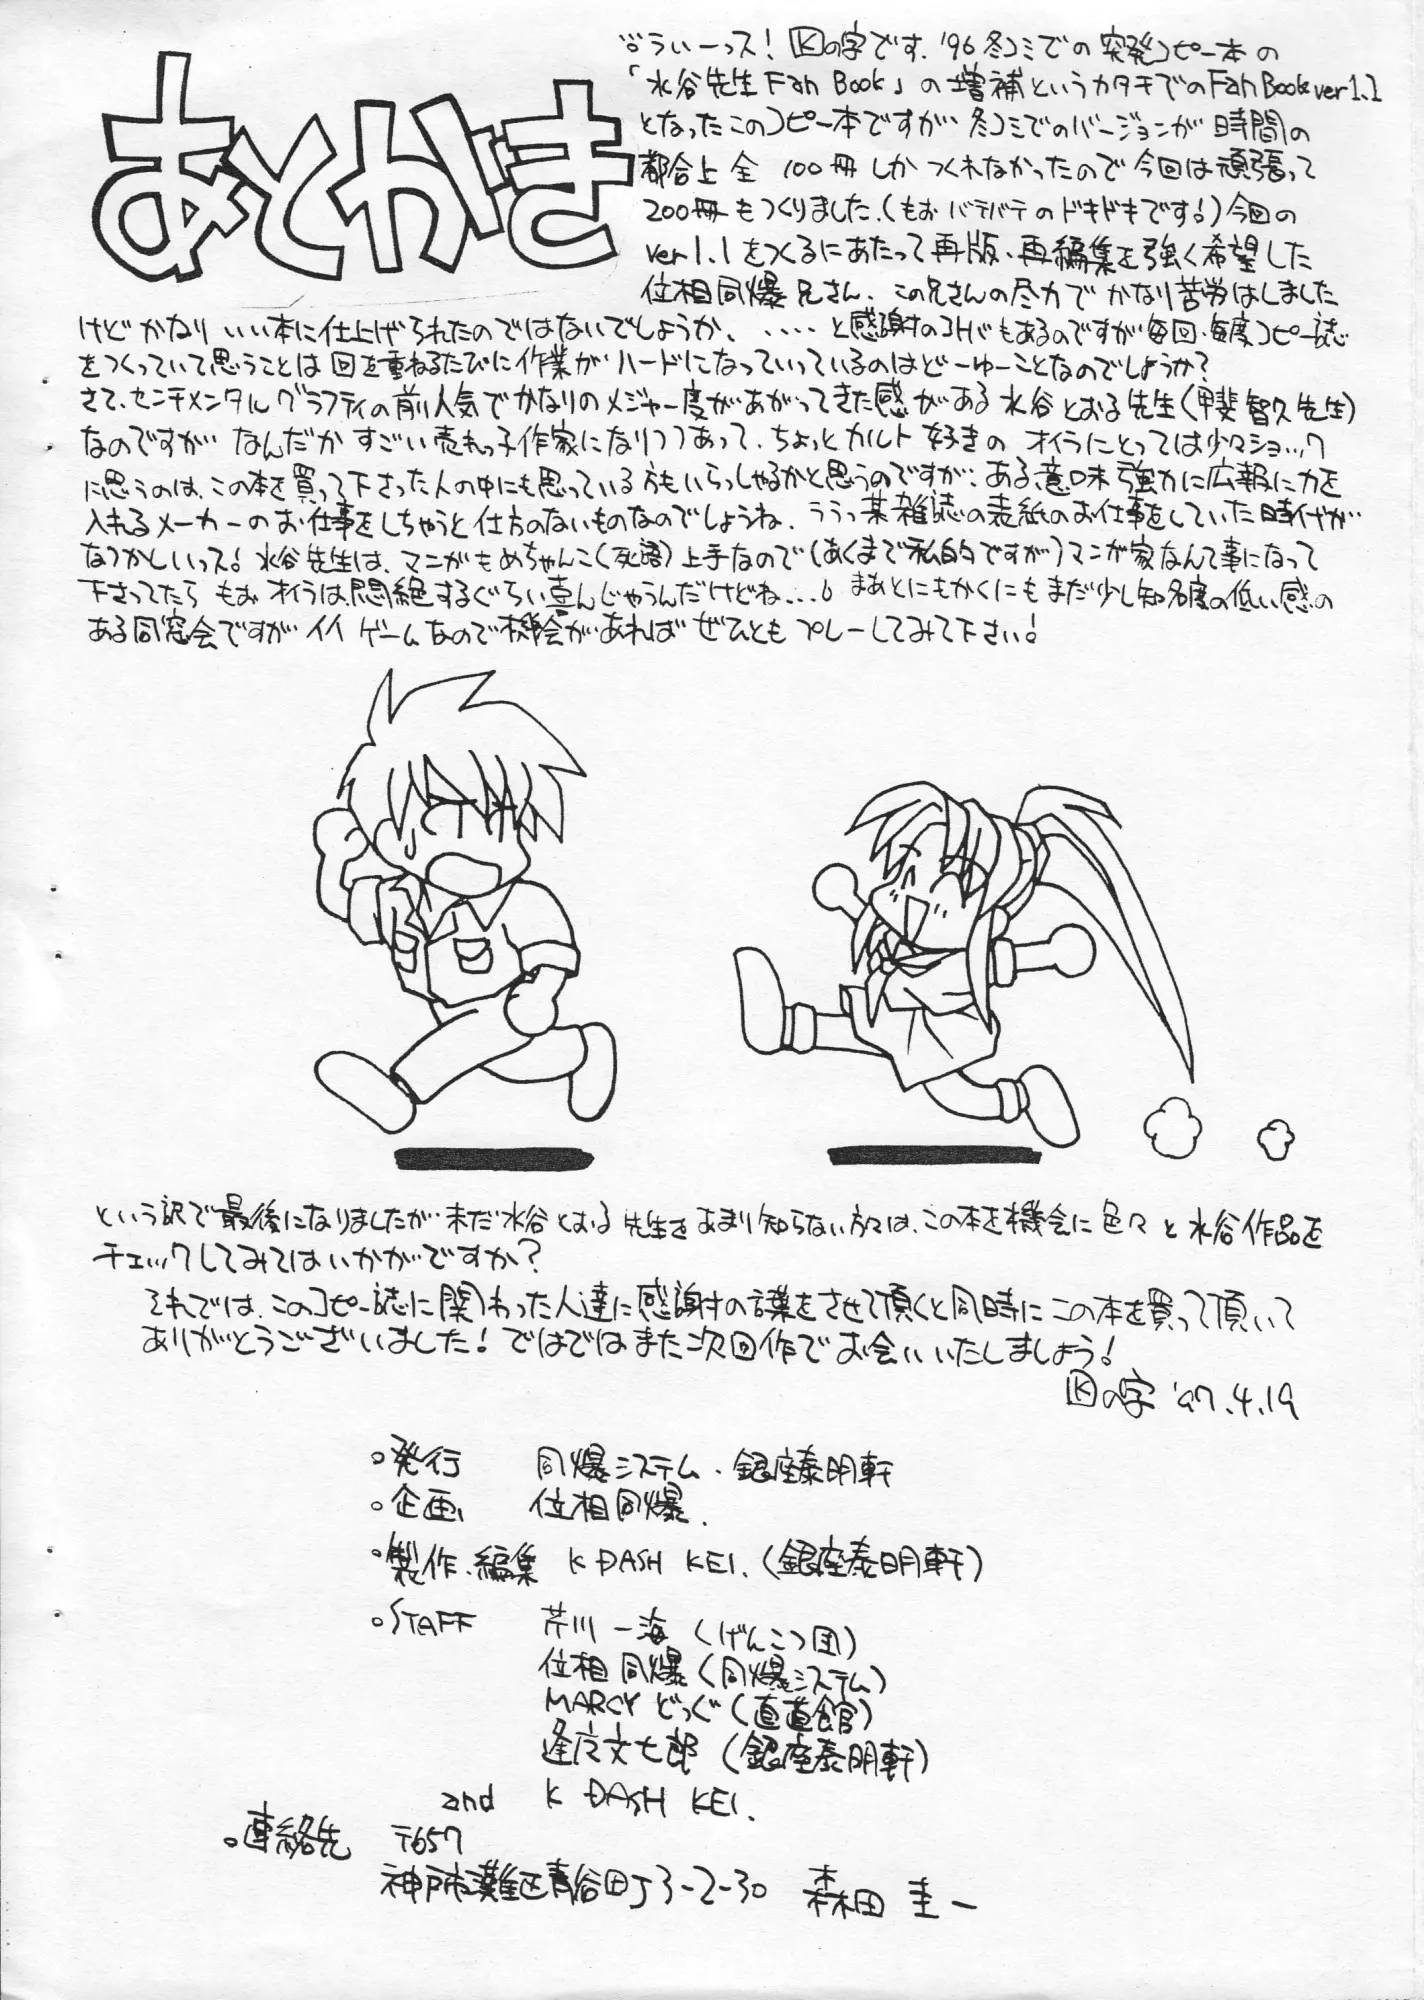 あとがき
ういーっス！Kの字です.'96冬コミでの突発コピー本の
「水谷先生Fan Book」の増補というカタチでのFan Book ver1.1
となったこのコピー本ですが冬コミでのバージョンが時間の
都合上全100冊しかつくれなかったので今回は頑張って
200冊もつくりました.(もおバテバテのドキドキです!)今回の
ver1.1をつくるにあたって再版・再編集を強く希望した
位相同爆兄さん、この兄さんの尽力でかなり苦労はしました
けどかなりいい本に仕上げられたのではないでしょうか、....と感謝のコトバもあるのですが毎回・毎度コピー誌
をつくっていて思うことは回を重ねるたびに作業がハードになっていっているのはどーゆーことなのでしょうか?
さて、センチメンタルグラフティの前人気でかなりのメジャー度があがってきた感がある水谷とおる先生(甲斐智久先生)
なのですがなんだかすごい売れっ子作家になりつつあって、ちょっとカルト好きのオイラにとっては少々ショック
に思うのは、この本を買って下さった人の中にも思っている方もいらっしゃるかと思うのですが、ある意味強力に広報に力を
入れるメーカーのお仕事をしちゃうと仕方のないものなのでしょうね、ううっ某雑誌の表紙のお仕事をしていた時代が
なつかしいっス!水谷先生は、マンガもめちゃんこ(死語)上手なので(あくまで私的ですが)マンガ家なんて事になって
下さってたらもおオイラは悶絶するぐらい喜んじゃうんだけどね...。まあとにもかくにもまだ少し知名度の低い感の
ある同窓会ですがイイゲームなので機会があればぜひともプレーしてみて下さい!
という訳で最後になりましたが未だ水谷とおる先生をあまり知らない方々は、この本を機会に色々と水谷作品を
チェックしてみてはいかがですか?
それでは、このコピー誌に関わった人達に感謝の言葉をさせて頂くと同時にこの本を買って頂いて
ありがとうございました!ではではまた次回作でお会いいたしましょう!
Kの字 '97.4.19
○発行 同爆システム・銀座泰明軒
○企画 位相同爆.
○製作・編集 K DASH KEI.(銀座泰明軒)
○STAFF 芹川一海(げんこつ団)
位相同爆(同爆システム)
MARCYどっぐ(直道館)
逢庁文七郎(銀座泰明軒)
and K DASH KEI.
○連絡先 〒657
神戸市灘区青谷町3-2-30 森田圭一